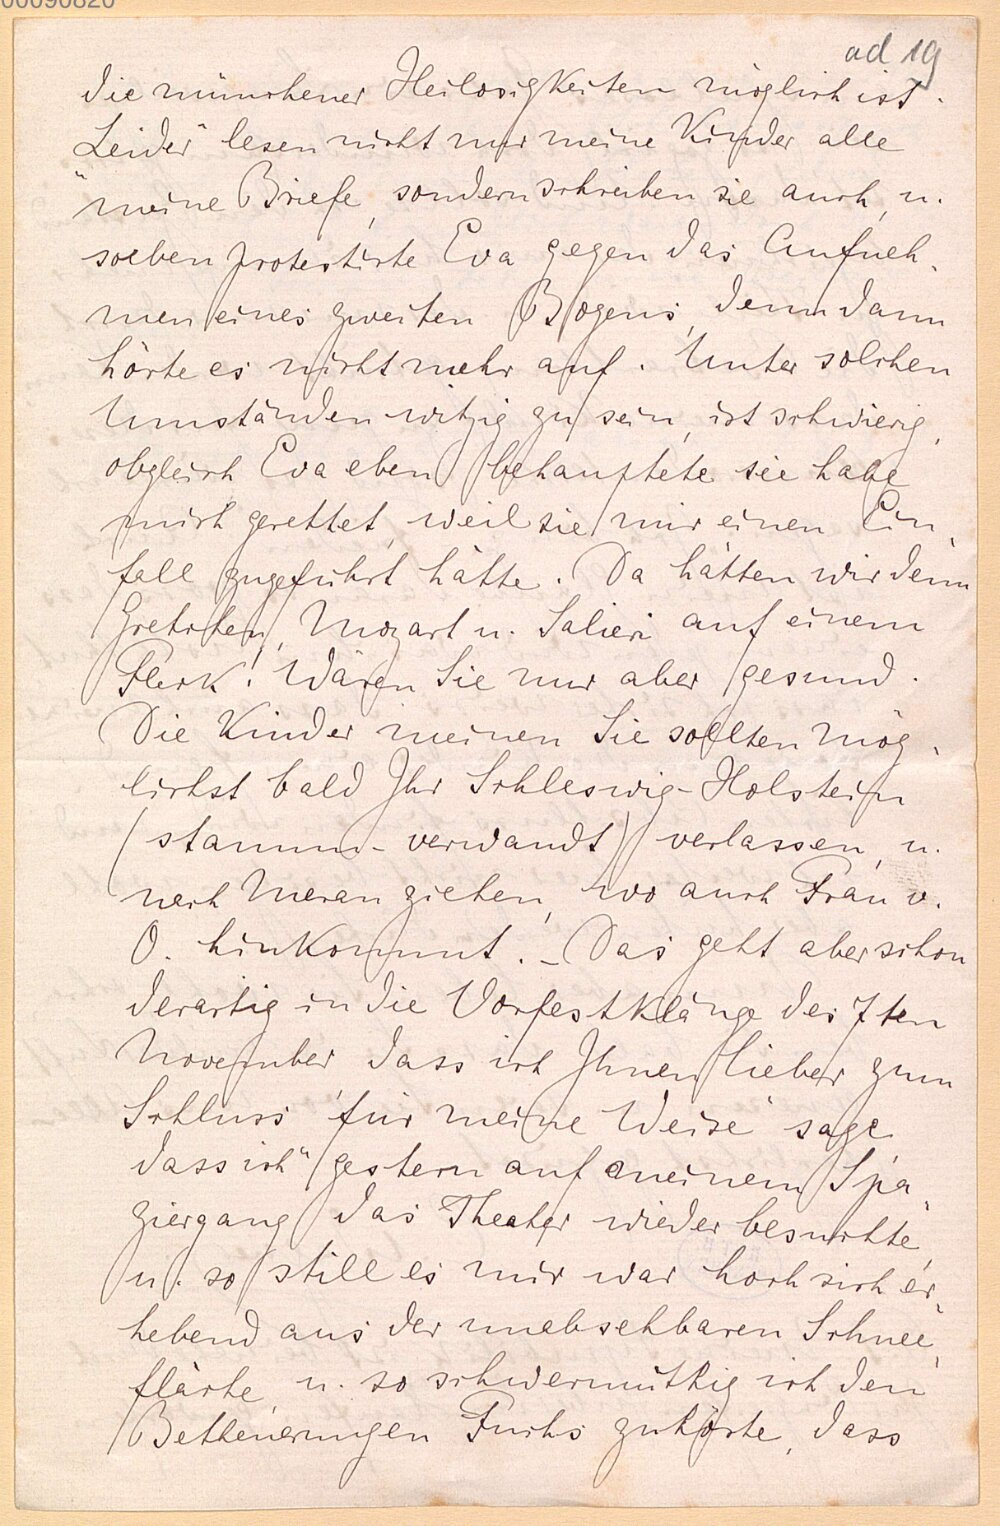 00090820
ad 19
die münchener Heillosigkeiten möglich ist.
„Leider“ lesen nicht nur meine Kinder alle
meine Briefe, sondern schreiben sie auch, u.
soeben protestirte Eva gegen das Aufneh-
men eines zweiten Bogens, denn dann
hörte es nicht mehr auf. Unter solchen
Umständen witzig zu sein, ist schwierig,
obgleich Eva eben behauptete sie habe
mich gerettet, weil sie mir einen Ein-
fall zugeführt hätte. Da hätten wir denn
Gretchen, Mozart u. Salieri auf einem
Fleck! Wären Sie nur aber gesund.
Die Kinder meinen Sie sollten mög-
lichst bald Ihr Schleswig-Holstein
(stamm-verwandt) verlassen, u.
nach Meran ziehen, wo auch Frau v.
O. hinkommt. – Das geht aber schon
derartig in die Vorfestklänge des 7ten
November dass ich Ihnen lieber zum
Schluss „für meine Weise“ sage
dass ich gestern auf meinem Spa-
ziergang das Theater wieder besuchte,
u. so still es mir war hoch sich er-
hebend aus der unabsehbaren Schnee-
fläche, u. so schwermüthig ich den
Betheuerungen Fuchs zuhörte, dass